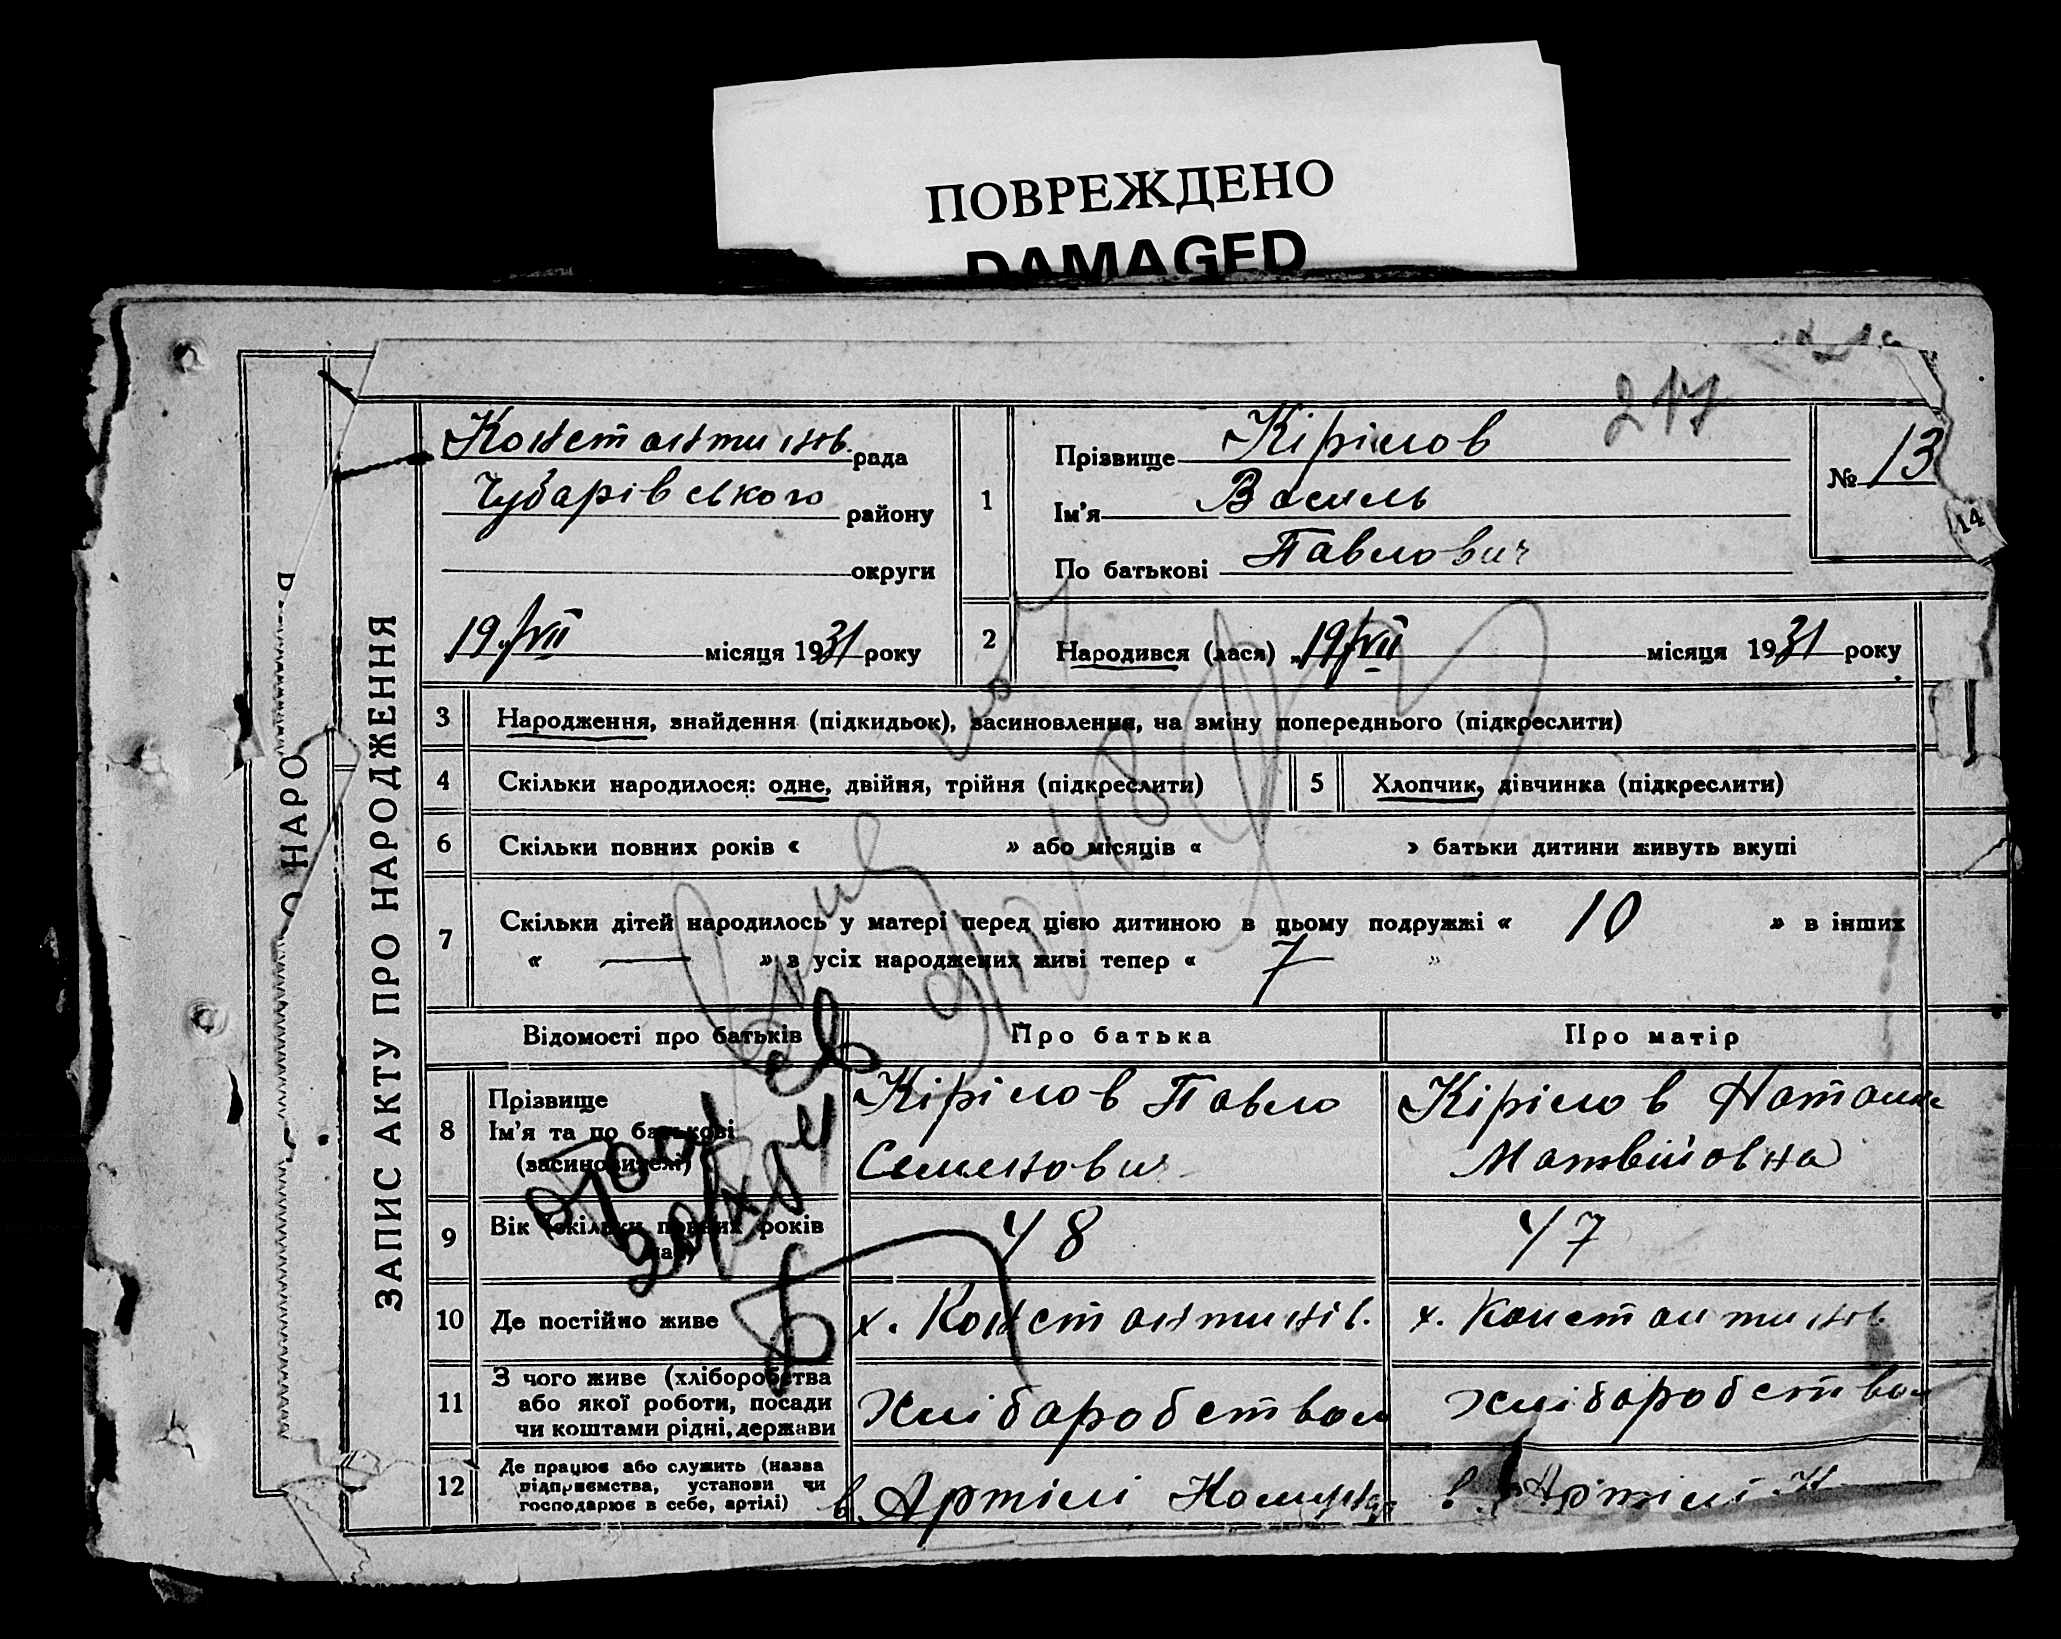 ПОВРЕЖДЕНО
DAMAGED
О НАРО
ЗАПИС АКТУ ПРО НАРОДЖЕННЯ
217
Константинів. рада
Чубарівського району
округи
19/VII місяця 1931 року
1
Прізвище Кірілов
Ім'я Василь
По батькові Павлович
№ 13
14
2
Народився (лася) „19/VII місяця 1931 року
3 Народження, знайдення (підкидьок), засиновлення, на зміну попереднього (підкреслити)
4 Скільки народилося: одне, двійня, трійня (підкреслити)
5 Хлопчик, дівчинка (підкреслити)
6 Скільки повних років « » або місяців « » батьки дитини живуть вкупі
7 Скільки дітей народилось у матері перед цією дитиною в цьому подружжі « 10 » в інших
« — » з усіх народжених живі тепер « 7 »
Відомості про батьків
Про батька
Про матір
8 Прізвище
Ім'я та по батькові
(засиновителі)
Кірілов Павло
Семенович
Кірілов Наталія
Матвійовна
9 Вік (скільки повних років
48
47
10 Де постійно живе
х. Константинів.
х. Константинів.
11 З чого живе (хліборобства
або якої роботи, посади
чи коштами рідні, держави
Хлібаробством
Хлібаробством
12 Де працює або служить (назва
підприємства, установи чи
господарює в себе, артілі)
в Артілі
в Артілі